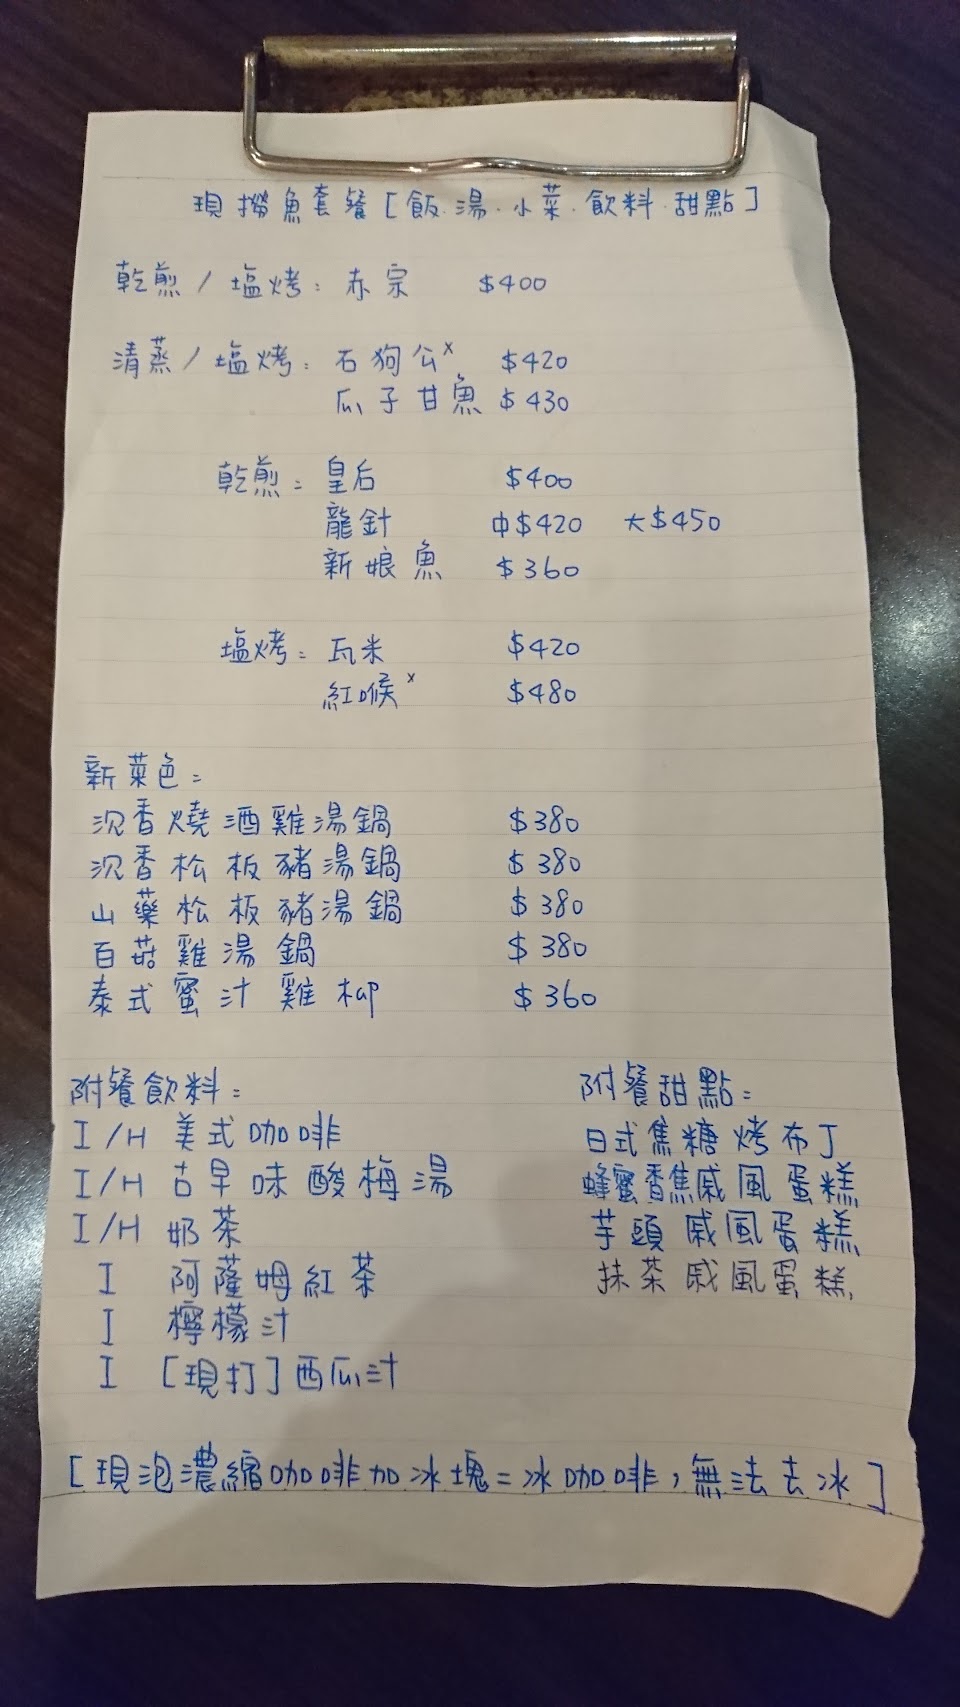 現撈魚套餐[飯.湯.小菜.飲料.甜點]
乾煎/塩烤: 赤宗 $400
清蒸/塩烤: 石狗公x $420
瓜子甘魚 $430
乾煎: 皇后 $400
龍針 中$420 大$450
新娘魚 $360
塩烤: 瓦米 $420
紅喉x $480
新菜色:
沉香燒酒雞湯鍋 $380
沉香松板豬湯鍋 $380
山藥松板豬湯鍋 $380
百菇雞湯鍋 $380
泰式蜜汁雞柳 $360
附餐飲料:
I/H 美式咖啡
I/H 古早味酸梅湯
I/H 奶茶
I 阿薩姆紅茶
I 檸檬汁
I [現打]西瓜汁
附餐甜點:
日式焦糖烤布丁
蜂蜜香焦戚風蛋糕
芋頭戚風蛋糕
抹茶戚風蛋糕
[現泡濃縮咖啡加冰塊=冰咖啡,無法去冰]